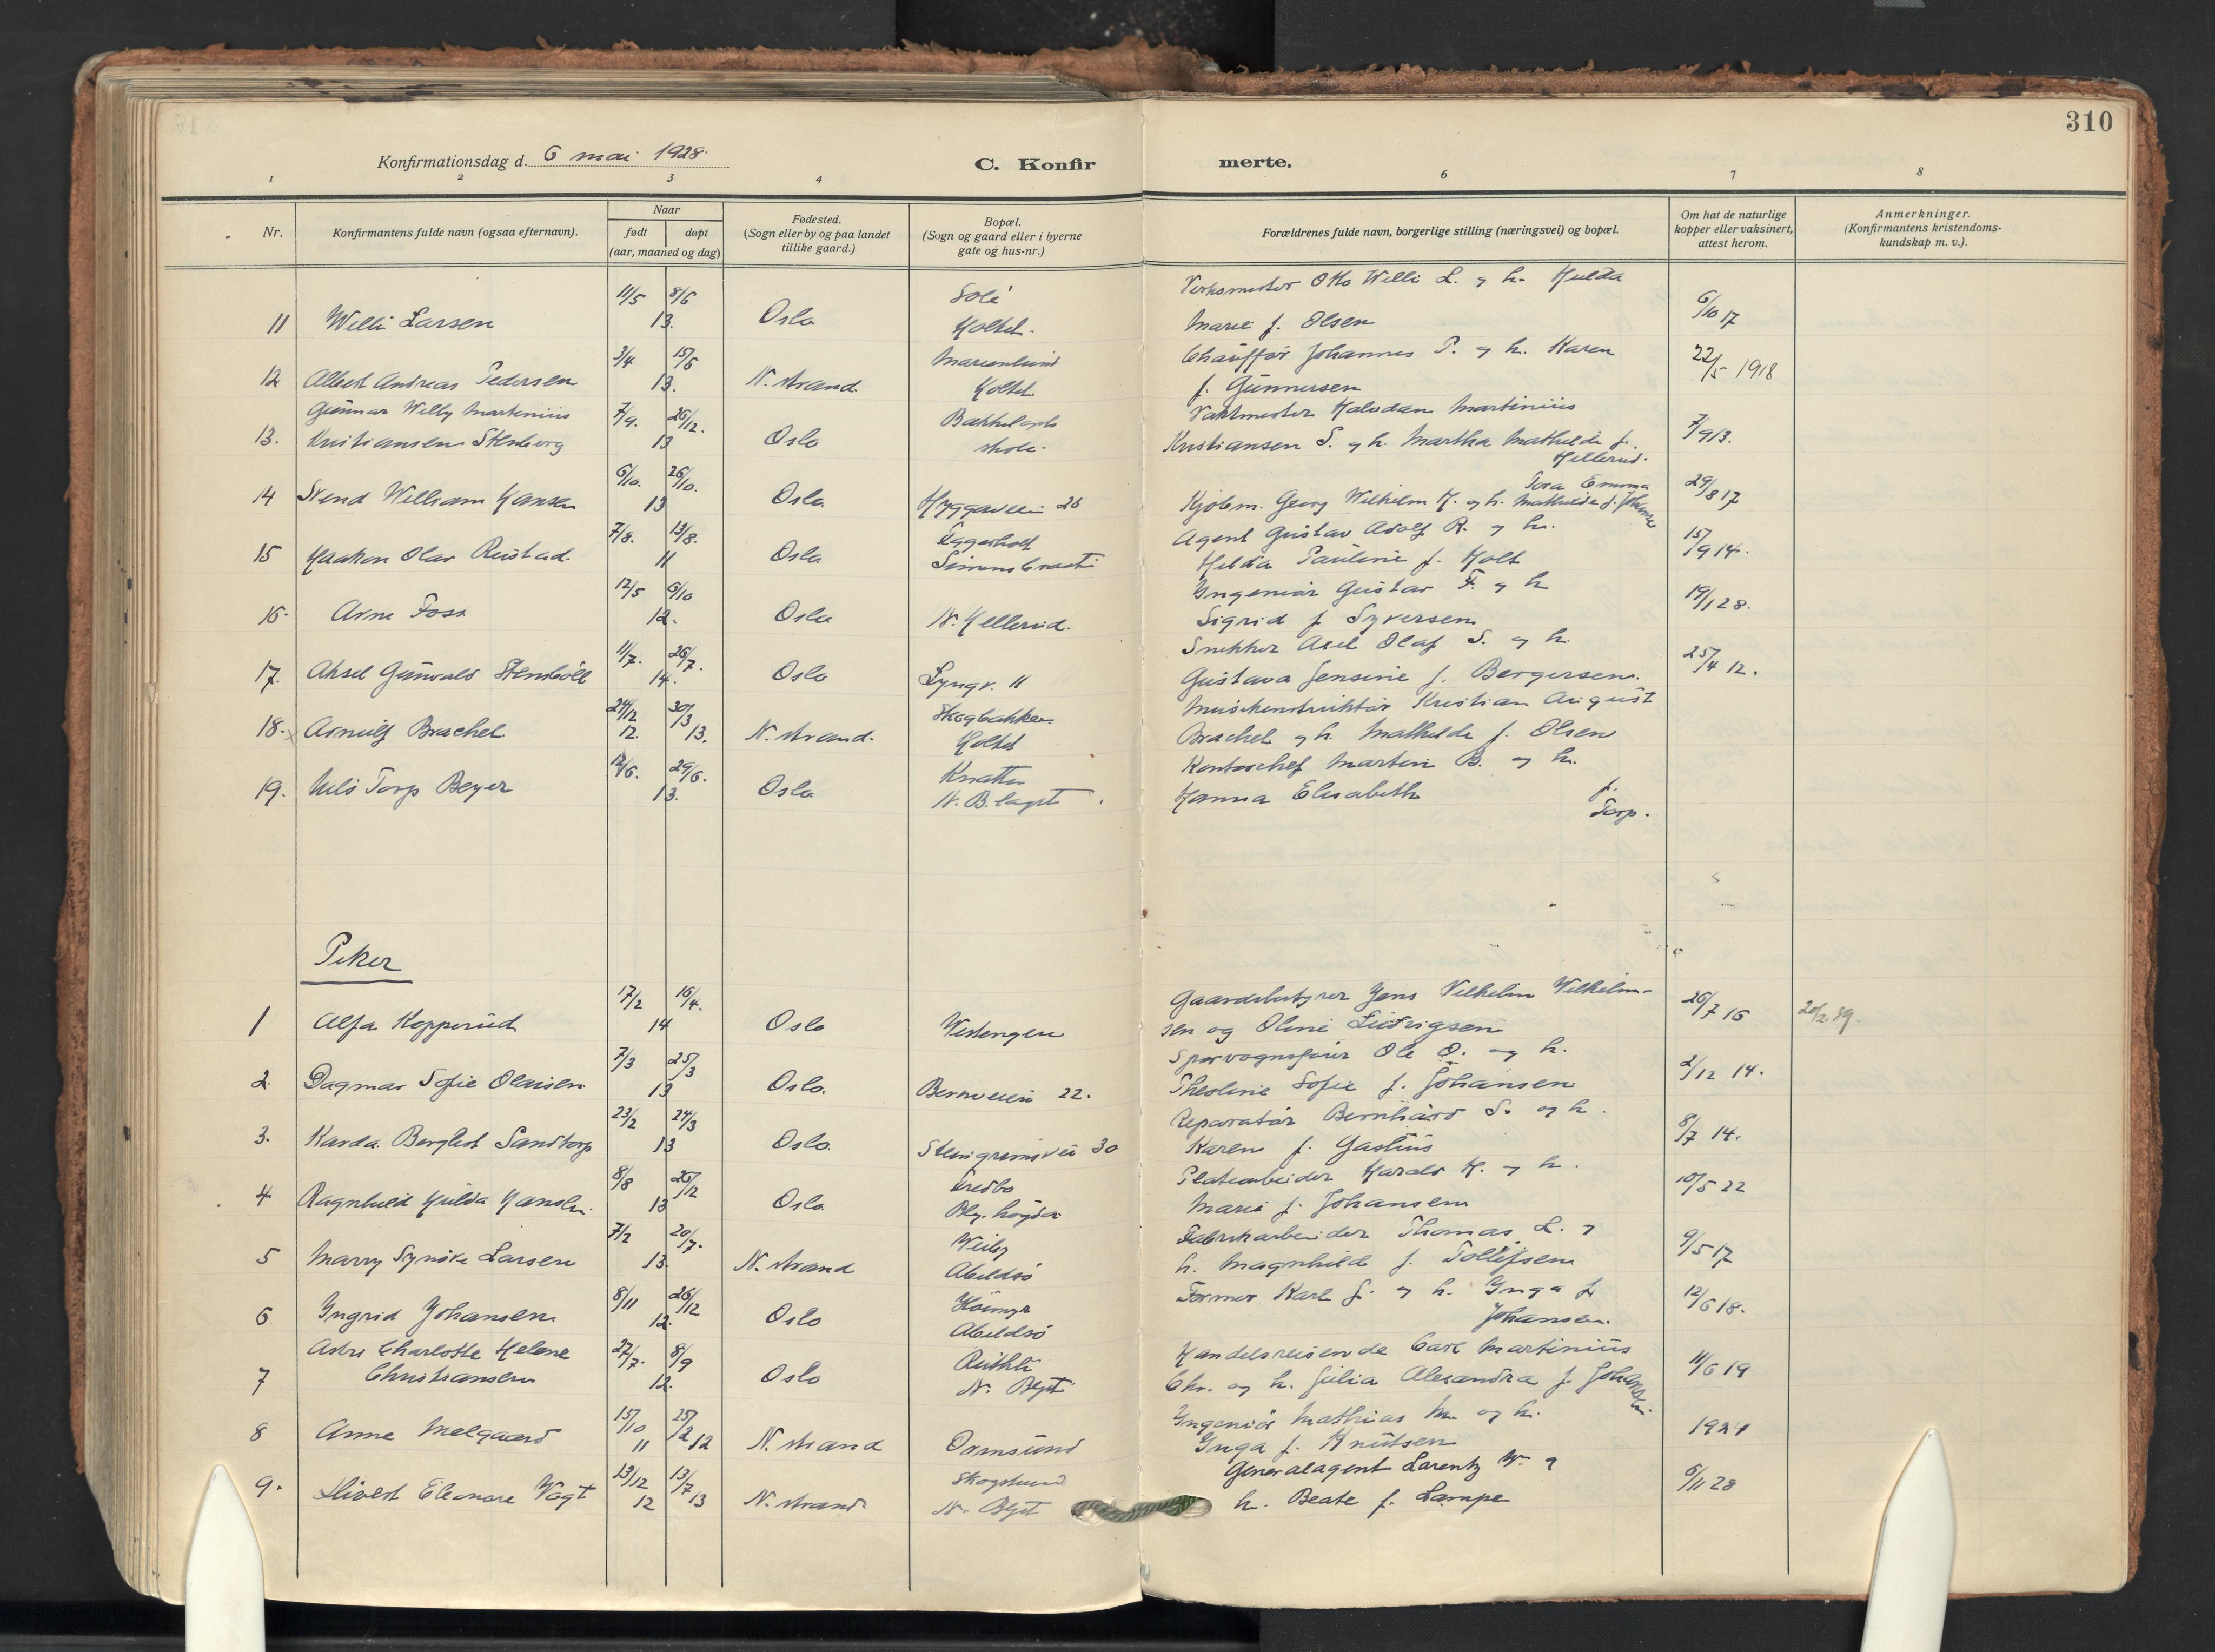 310
Konfirmationsdag d. 6 mai 1928.
C. Konfirmerte.
1 2 3 4 6 7 8
Nr.
Konfirmantens fulde navn (ogsaa efternavn).
Naar
født døpt
(aar, maaned og dag)
Fødested.
(Sogn eller by og paa landet
tillike gaard.)
Bopæl.
(Sogn og gaard eller i byerne
gate og hus-nr.)
Forældrenes fulde navn, borgerlige stilling (næringsvei) og bopæl.
Om hat de naturlige
kopper eller vaksinert,
attest herom.
Anmerkninger.
(Konfirmantens kristendoms-
kundskap m. v.).
11/5 8/6 Verksmester Otto Willi L. og h. Hulda
11 Willi Larsen 13. Oslo Holtet. Marie f. Olsen 6/10 17
3/4 15/6 Marienlund Chauffør Johannes P. og h. Karen
12 Albert Andreas Pedersen 13. N. strand. Holtet f. Gunnersen 22/5 1918
Gunnar Willy Martinius 7/9. 26/12. Bækkelagets Vaktmester Halvdan Martinius
13. Kristiansen Stenberg 13 Oslo skole. Kristiansen S. og h. Martha Mathilde f. 7/9 13.
Hellerud.
6/10. 26/10. Tora Emma
14 Svend William Hansen 13 Oslo Hyggeveien 26 Kjøbm. Georg Wilhelm H. og h. Mathilde f. Johansen 29/8 17
7/8. 13/8. Eggerholt Agent Gustav Adolf R. og h.
15 Haakon Olav Rustad. 11 Oslo Simensbraaten Hilda Pauline f. Holt 15/9 14.
12/5 6/10 Ingeniør Gustav F. og h
16. Arne Foss 12. Oslo N. Hellerud. Sigrid f. Syversen 19/1 28.
11/7. 26/7. Snekker Axel Olaf S. og h.
17. Aksel Gunvald Stensböll 14. Oslo Lyngv. 11 Gustava Jensine f. Bergersen. 25/4 12.
24/12 30/3 Skogbakken Musikinstruktör Kristian August
18. Arnulf Brachel 12. 13. N. strand. Holtet Brachel og h. Mathilde f. Olsen
12/6. 29/6. Knatten Kontorchef Martin B. og h.
19. Nils Torp Beyer 13. Oslo N. B.laget Hanna Elisabeth f.
Torp.
Piker
17/2 16/4. Gaardsbestyrer Jens Vilhelm Wilhelm-
1 Alfa Kopperud 14 Oslo Vestengen sen og Oline Ludvigsen 26/7 16
7/3 25/3 Sporvognsfører Ole O. og h.
2. Dagmar Sofie Olaisen 13 Oslo. Bernveien 22. Theoline Sofie f. Johansen 2/12 14.
23/2 24/3 Reparatør Bernhard S. og h.
3. Karda Bergliot Sandtorp 13 Oslo. Steingrimsvei 30 Karen f. Gastius 8/7 14.
8/8 26/12 Fredbo Platearbeider Harald H. og h.
4 Ragnhild Hulda Hansen. 13 Oslo Bly. høgda Marie f. Johansen 10/5 22
7/2 20/7. Weiby Fabrikarbeider Thomas L. og
5 Marry Synøve Larsen 13. N. strand Abildsø h. Magnhild f. Tollefsen 9/5 17
8/11 26/12 Former Karl J. og h. Inga f.
6 Ingrid Johansen 12. Oslo Abildsø Johansen. 12/6 18.
Astri Charlotte Helene 27/7. 8/9 Handelsreisende Carl Martinius
7 Christiansen 12. Oslo N. Blgt Chr. og h. Julia Alexandra f. Johansen 11/6 19
15/10 25/2 Ingeniør Mathias M. og h.
8 Anne Melgaard 11 12 N. strand Ormsund Inga f. Knutsen 1924
13/12 13/7 Skogslund Generalagent Larentz W. og
9. Eleonore Vogt 12 13 N. strand. N. Blgt h. Beate f. Lampe 6/11 28